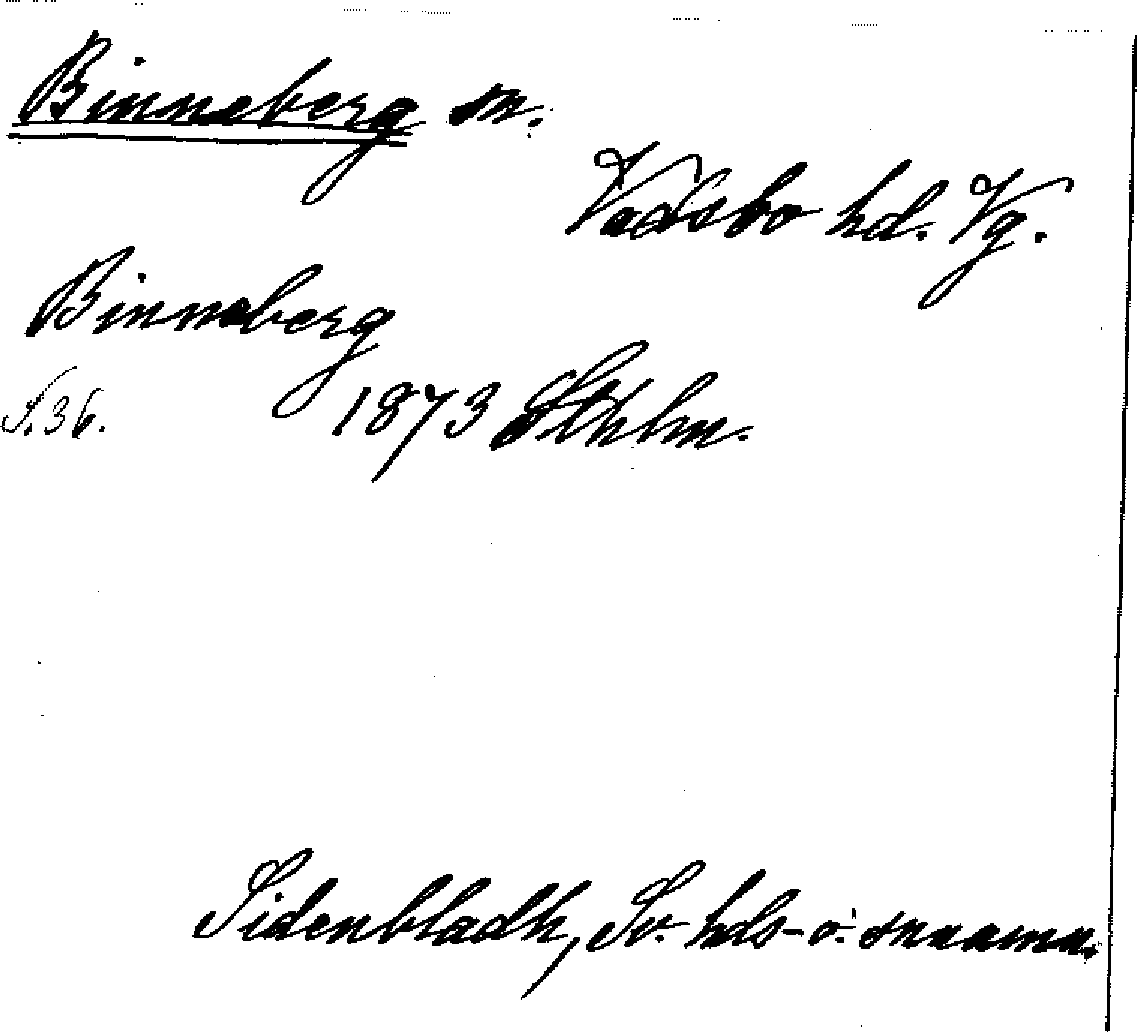 Binneberg sn.
Vadsbo hd. Vg.
Binneberg
S. 36. 1873 Sthlm.
Sidenbladh, Sv. hds- o. snnamn.